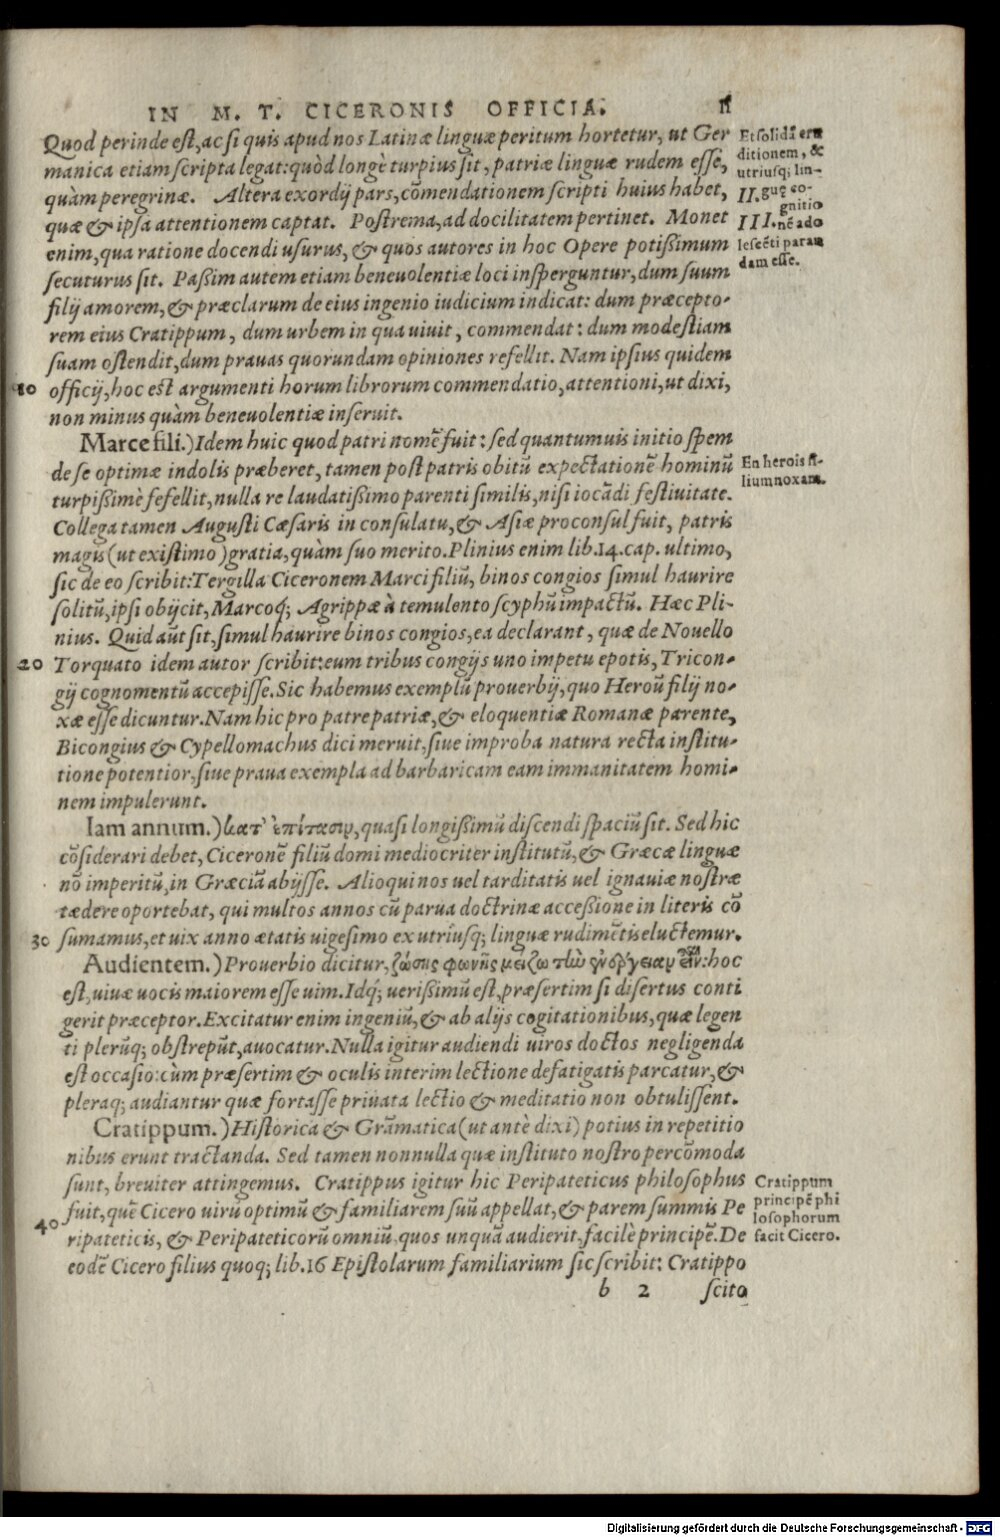 IN M. T. CICERONIS OFFICIA. 11
Quod perinde est, ac si quis apud nos Latinæ linguæ peritum hortetur, ut Ger
manica etiam scripta legat: quòd longè turpius sit, patriæ linguæ rudem esse,
quàm peregrinæ. Altera exordij pars, cōmendationem scripti huius habet,
quæ & ipsa attentionem captat. Postrema, ad docilitatem pertinet. Monet
enim, qua ratione docendi usurus, & quos autores in hoc Opere potißimum
secuturus sit. Paßim autem etiam beneuolentiæ loci insperguntur, dum suum
filij amorem, & præclarum de eius ingenio iudicium indicat: dum præcepto-
rem eius Cratippum, dum urbem in qua uiuit, commendat: dum modestiam
suam ostendit, dum prauas quorundam opiniones refellit. Nam ipsius quidem
10 officij, hoc est argumenti horum librorum commendatio, attentioni, ut dixi,
non minus quàm beneuolentiæ inseruit.
Marce fili.) Idem huic quod patri nomē fuit: sed quantumuis initio spem
de se optimæ indolis præberet, tamen post patris obitū expectationē hominū
turpißimè fefellit, nulla re laudatißimo parenti similis, nisi iocādi festiuitate.
Collega tamen Augusti Cæsaris in consulatu, & Asiæ proconsul fuit, patris
magis (ut existimo) gratia, quàm suo merito. Plinius enim lib. 14. cap. ultimo,
sic de eo scribit: Tergilla Ciceronem Marci filiū, binos congios simul haurire
solitū, ipsi obijcit, Marcoq́; Agrippæ à temulento scyphū impactū. Hæc Pli-
nius. Quid aūt sit, simul haurire binos congios, ea declarant, quæ de Nouello
20 Torquato idem autor scribit: eum tribus congijs uno impetu epotis, Tricon-
gij cognomentū accepisse. Sic habemus exemplū prouerbij, quo Heroū filij no-
xæ esse dicuntur. Nam hic pro patre patriæ, & eloquentiæ Romanæ parente,
Bicongius & Cypellomachus dici meruit, siue improba natura recta institu-
tione potentior, siue praua exempla ad barbaricam eam immanitatem homi-
nem impulerunt.
Iam annum.) κατ' ἐπίτασιν, quasi longißimū discendi spaciū sit. Sed hic
cōsiderari debet, Ciceronē filiū domi mediocriter institutū, & Græcæ linguæ
nō imperitū, in Græciā abijsse. Alioqui nos uel tarditatis uel ignauiæ nostræ
tædere oportebat, qui multos annos cū parua doctrinæ acceßione in literis cō
30 sumamus, et uix anno ætatis uigesimo ex utriusq; linguæ rudimētis eluctemur.
Audientem.) Prouerbio dicitur, ζώσης φωνῆς μείζω τὼ ἐνέργειαν εἶναι: hoc
est, uiuæ uocis maiorem esse uim. Idq́; uerißimū est, præsertim si disertus conti
gerit præceptor. Excitatur enim ingeniū, & ab alijs cogitationibus, quæ legen
ti plerūq; obstrepūt, auocatur. Nulla igitur audiendi uiros doctos negligenda
est occasio: cùm præsertim & oculis interim lectione defatigatis parcatur, &
pleraq; audiantur quæ fortasse priuata lectio & meditatio non obtulissent.
Cratippum.) Historica & Grāmatica (ut antè dixi) potius in repetitio
nibus erunt tractanda. Sed tamen nonnulla quæ instituto nostro percōmoda
sunt, breuiter attingemus. Cratippus igitur hic Peripateticus philosophus
fuit, quē Cicero uirū optimū & familiarem suū appellat, & parem summis Pe
40 ripateticis, & Peripateticorū omniū, quos unquā audierit, facilè principē. De
eodē Cicero filius quoq; lib. 16 Epistolarum familiarium sic scribit: Cratippo
b 2 scito
Et solidā eru
ditionem, &
utriusq; lin-
II. guę co-
gnitio
III. nē ado
lescēti paran
dam esse.
En herois fi-
lium noxam.
Cratippum
principē phi
losophorum
facit Cicero.
Digitalisierung gefördert durch die Deutsche Forschungsgemeinschaft - DFG